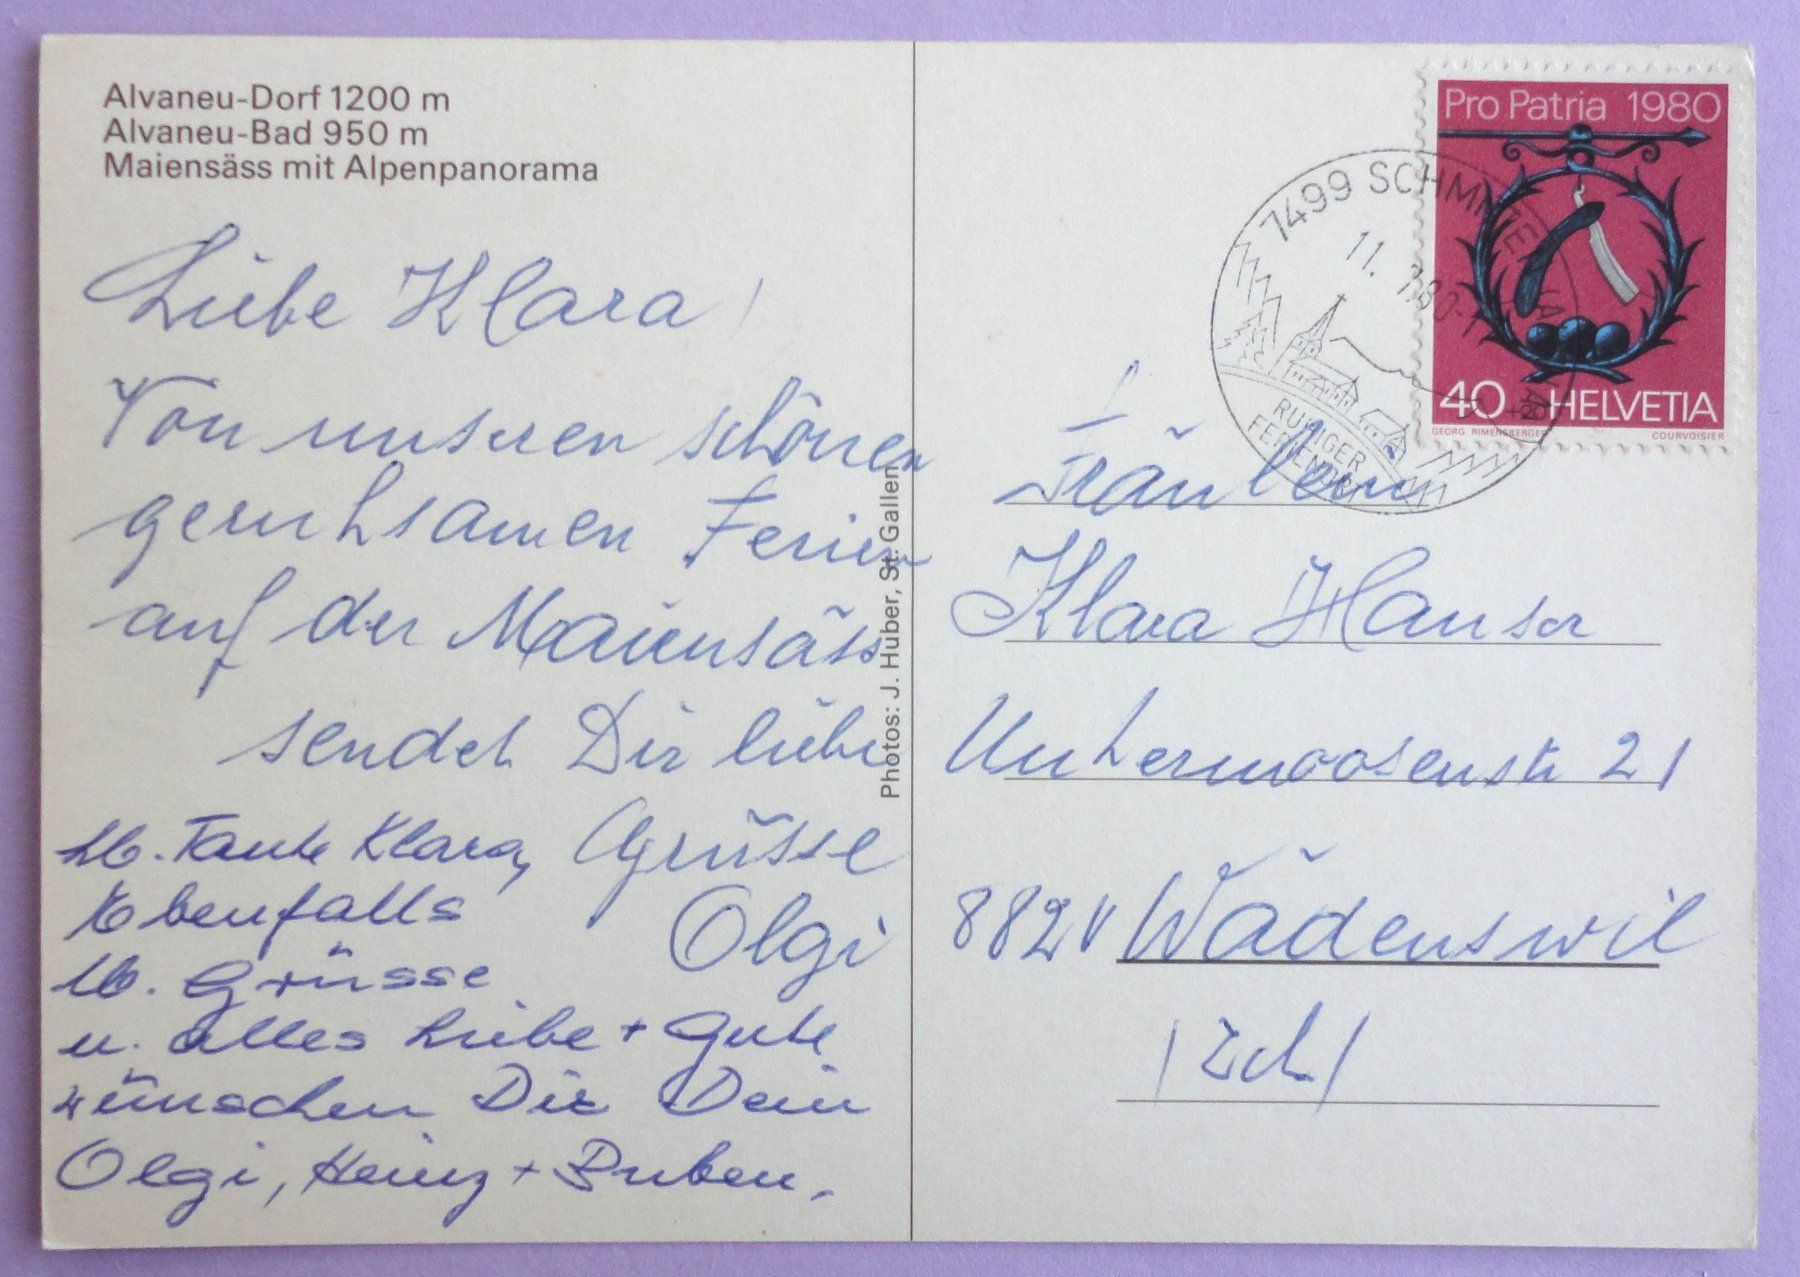 Alvaneu-Dorf 1200 m
Alvaneu-Bad 950 m
Maiensäss mit Alpenpanorama
Liebe Klara!
Von unseren schönen
geruhsamen Ferien
auf der Maiensäss
sendet Dir liebe
Grüsse
Olgi
Lb. Tante Klara,
Ebenfalls
lb. Grüsse
u. alles Liebe + Gute
wünschen Dir Dein
Olgi, Heinz + Buben.
Photos: J. Huber, St. Gallen
Pro Patria 1980
40 HELVETIA
GEORG RIMENSBERGER COURVOISIER
7499 SCHMITTEN
11. 7.80
RUHIGER
FERIENORT
Fräulein
Klara Hauser
Untermoosenstr 21
8820 Wädenswil
/Zch/